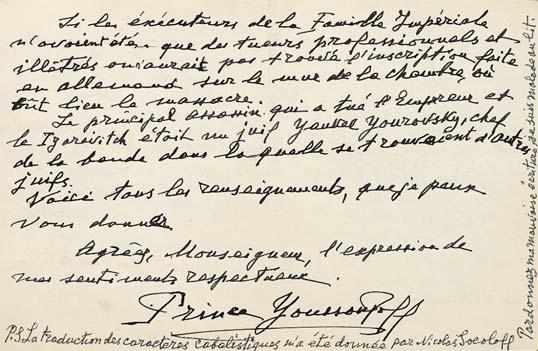 Si les exécuteurs de la Famille Impériale
n'avoient été que des tueurs professionnels et
illétrés on n'aurait pas trouvé l'inscription faite
en allemand sur le mur de la chambre où
eut lieu le massacre.
Le principal assassin qui a tué l'Empereur et
le Tzarévitch était un juif Yankel Yourovsky, chef
de la bande dans laquelle se trouvaient d'autres
juifs.
Voici tous les renseignements, que je peux
vous donner
Agréez, Monseigneur, l'expression de
mes sentiments respectueux.
Prince Youssoupoff
P.S. La traduction des caractères cabalistiques m'a été donnée par Nicolas Socoloff
Pardonnez ma mauvaise écriture, je suis malade au lit.